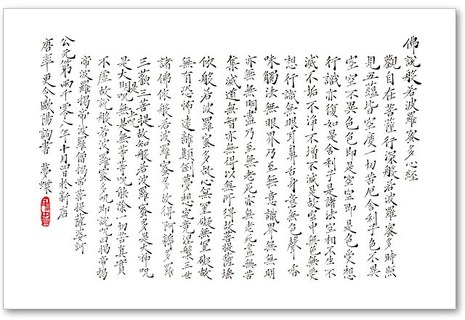 佛說般若波羅蜜多心經
觀自在菩薩行深般若波羅蜜多時照
見五蘊皆空度一切苦厄舍利子色不異
空空不異色色即是空空即是色受想
行識亦復如是舍利子是諸法空相不生不
滅不垢不淨不增不減是故空中無色無受
想行識無眼耳鼻舌身意無色聲香
味觸法無眼界乃至無意識界無無明
亦無無明盡乃至無老死亦無老死盡無苦
集滅道無智亦無得以無所得故菩提薩埵
依般若波羅蜜多故心無罣礙無罣礙故
無有恐怖遠離顛倒夢想究竟涅槃三世
諸佛依般若波羅蜜多故得阿耨多羅
三藐三菩提故知般若波羅蜜多是大神咒
是大明咒是無上咒是無等等咒能除一切苦真實
不虛故說般若波羅蜜多咒即說咒曰揭帝揭
帝波羅揭帝波羅僧揭帝菩提薩婆訶
公元第兩千零八年十月於新店
書 夢蝶